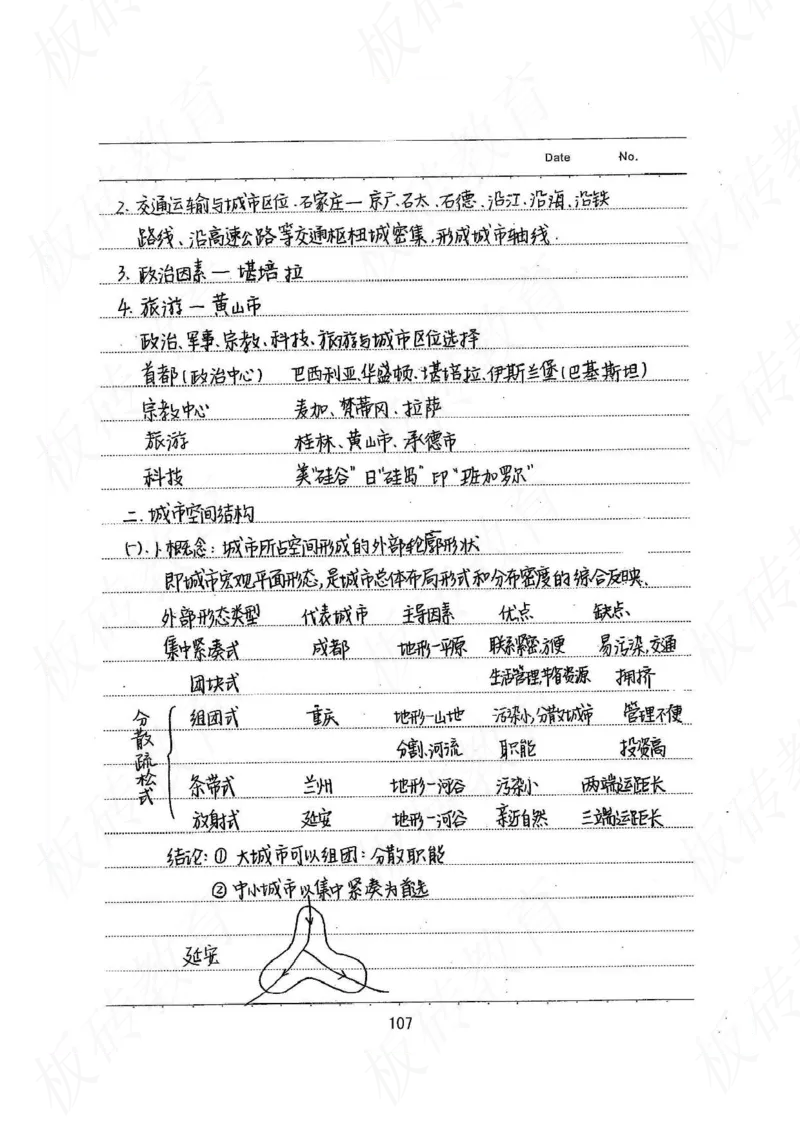 Date No.
2. 交通运输与城市区位.石家庄—京广、石太、石德、沿江、沿海、沿铁
路线、沿高速公路等交通枢纽城密集,形成城市轴线.
3. 政治因素—堪培拉
4. 旅游—黄山市
政治、军事、宗教、科技、旅游与城市区位选择
首都(政治中心) 巴西利亚、华盛顿、堪培拉、伊斯兰堡(巴基斯坦)
宗教中心 麦加、梵蒂冈、拉萨
旅游 桂林、黄山市、承德市
科技 美"硅谷" 日"硅岛" 印"班加罗尔"
二.城市空间结构
(一).1.概念:城市所占空间形成的外部轮廓形状
即城市宏观平面形态,是城市总体布局形式和分布密度的综合反映.
外部形态类型 代表城市 主导因素 优点 缺点
集中紧凑式 成都 地形—平原 联系紧密,方便 易污染,交通
团块式 生活管理,节省资源 拥挤
分散疏松式
组团式 重庆 地形—山地 污染小,分散城市 管理不便
分割、河流 职能 投资高
条带式 兰州 地形—河谷 污染小 两端运距长
放射式 延安 地形—河谷 亲近自然 三端运距长
结论:① 大城市可以组团:分散职能
② 中小城市以集中紧凑为首选
延安
107
板砖教育